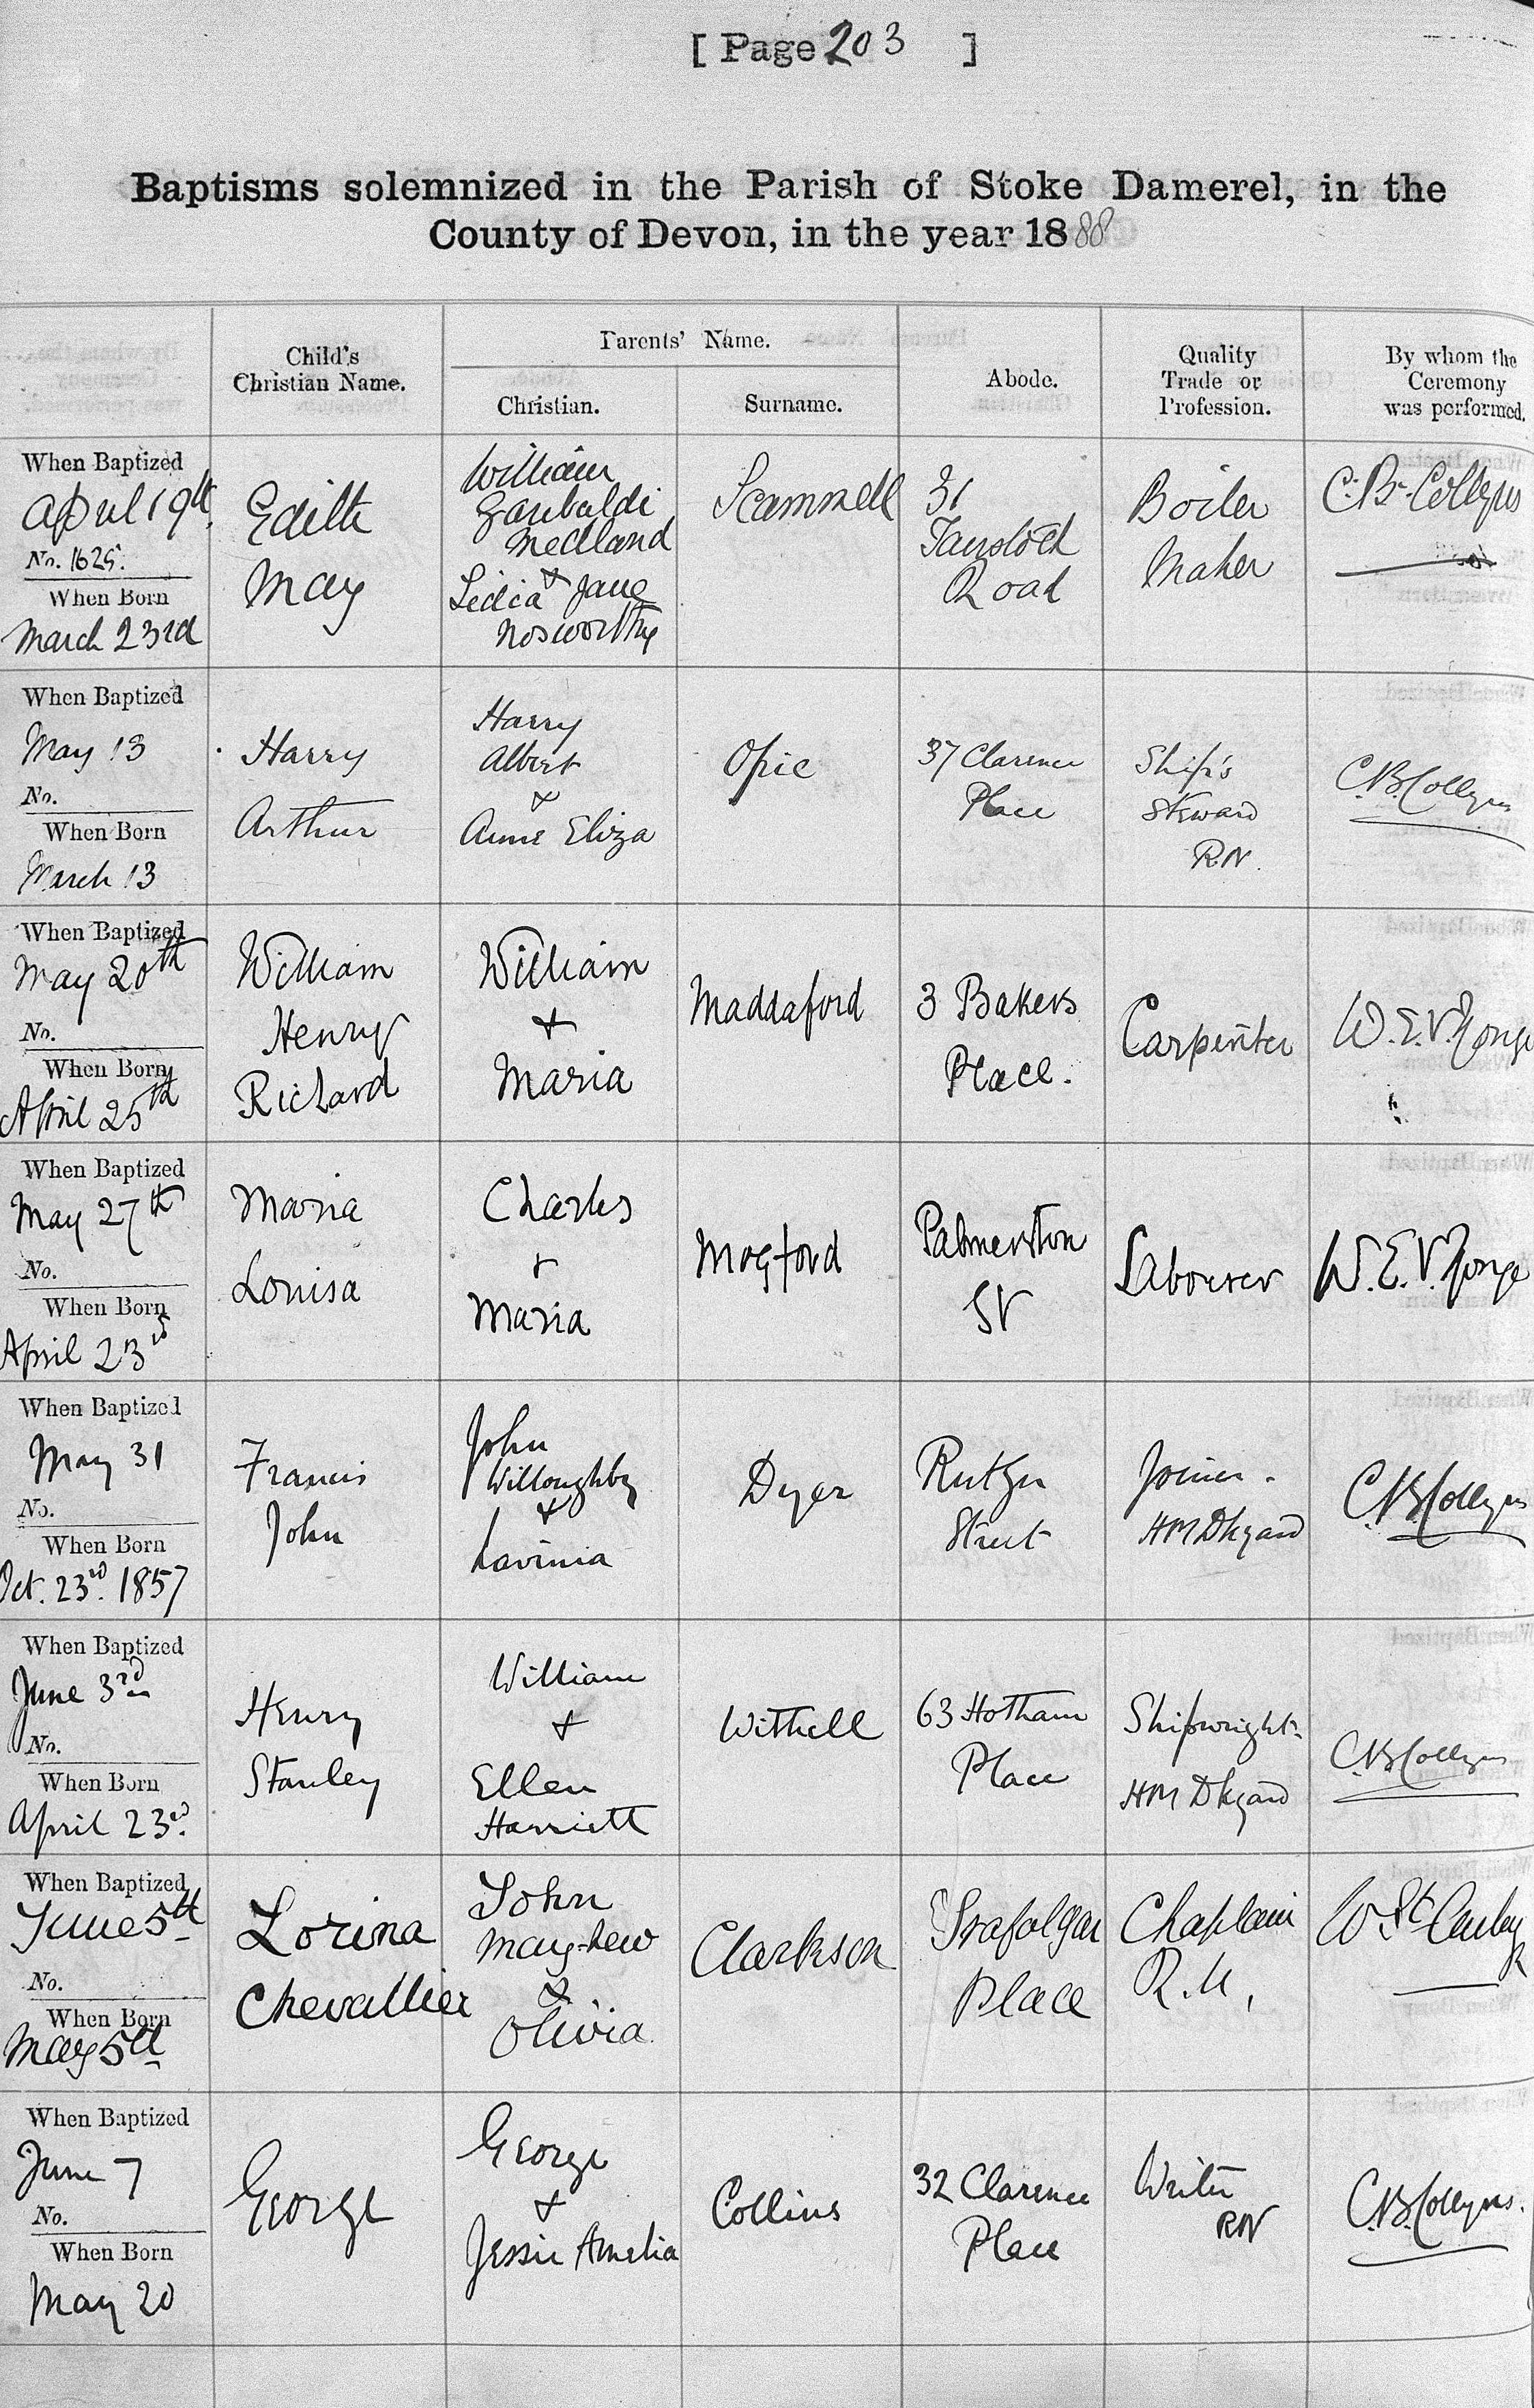 [ Page 203 ]
Baptisms solemnized in the Parish of Stoke Damerel, in the
County of Devon, in the year 1888
Child's
Christian Name.
Parents' Name.
Christian.
Surname.
Abode.
Quality
Trade or
Profession.
By whom the
Ceremony
was performed.
When Baptized
April 19th
No. 1625.
When Born
March 23rd
Edith
May
William
Garibaldi
Medland
&
Lidia Jane
Nosworthy
Scammell
31
Tavistock
Road
Boiler
Maker
C. B. Collyns
When Baptized
May 13
No.
When Born
March 13
Harry
Arthur
Harry
Albert
&
Annie Eliza
Opie
37 Clarence
Place
Ship's
Steward
RN.
C.B. Collyns
When Baptized
May 20th
No.
When Born
April 25th
William
Henry
Richard
William
+
Maria
Maddaford
3 Bakers
Place.
Carpenter
W. E. V. Yonge
When Baptized
May 27th
No.
When Born
April 23rd
Maria
Louisa
Charles
+
Maria
Mogford
Palmerston
St
Labourer
W. E. V. Yonge
When Baptized
May 31
No.
When Born
Oct. 23rd. 1857
Francis
John
John
Willoughby
&
Lavinia
Dyer
Street
Joiner.
HM Dkyard
C.B. Collyns
When Baptized
June 3rd
No.
When Born
April 23rd.
Henry
Stanley
William
+
Ellen
Harriett
Withell
63 Hotham
Place
Shipwright
HM Dkyard
C.B. Collyns
When Baptized
June 5th
No.
When Born
May 5th
Lorina
Chevallier
John
Mayhew
&
Olivia
Clarkson
Trafalgar
Place
Chaplain
R.N.
When Baptized
June 7
No.
When Born
May 20
George
George
+
Jessie Amelia
Collins
32 Clarence
Place
Writer
RN
C.B. Collyns.